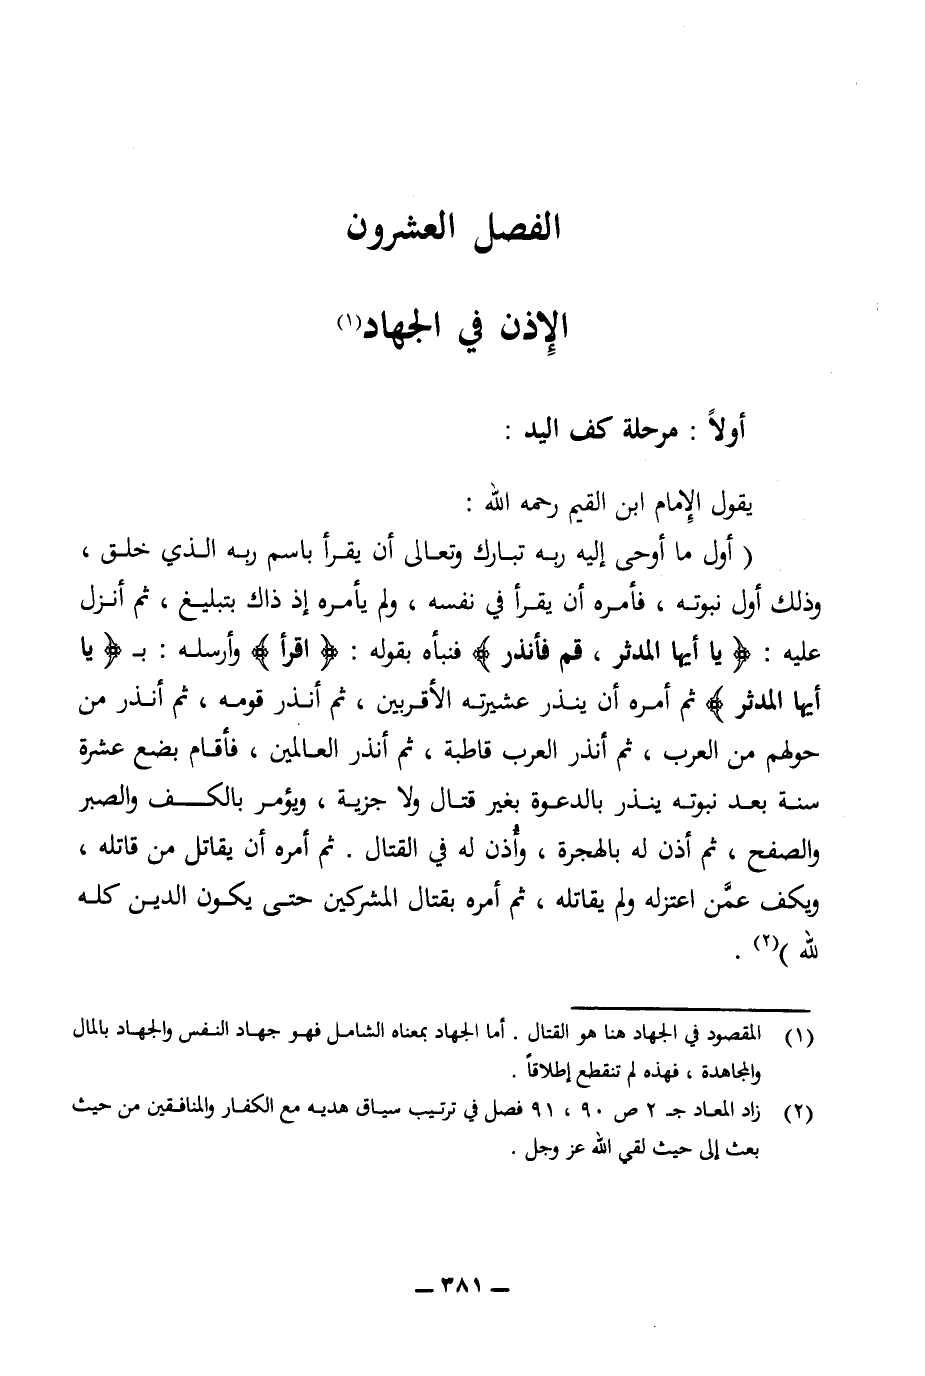 الفصل العشرون
الإذن في الجهاد(١)
أولاً : مرحلة كف اليد :
يقول الإمام ابن القيم رحمه الله :
( أول ما أوحى إليه ربه تبارك وتعالى أن يقرأ باسم ربه الذي خلق ،
وذلك أول نبوته ، فأمره أن يقرأ في نفسه ، ولم يأمره إذ ذاك بتبليغ ، ثم أنزل
عليه : ﴿ يا أيها المدثر ، قم فأنذر ﴾ فنبأه بقوله : ﴿ اقرأ ﴾ وأرسله : بـ ﴿ يا
أيها المدثر ﴾ ثم أمره أن ينذر عشيرته الأقربين ، ثم أنذر قومه ، ثم أنذر من
حولهم من العرب ، ثم أنذر العرب قاطبة ، ثم أنذر العالمين ، فأقام بضع عشرة
سنة بعد نبوته ينذر بالدعوة بغير قتال ولا جزية ، ويؤمر بالكف والصبر
والصفح ، ثم أذن له بالهجرة ، وأُذن له في القتال . ثم أمره أن يقاتل من قاتله ،
ويكف عمَّن اعتزله ولم يقاتله ، ثم أمره بقتال المشركين حتى يكون الدين كله
لله )(٢) .
(١) المقصود في الجهاد هنا هو القتال . أما الجهاد بمعناه الشامل فهو جهاد النفس والجهاد بالمال
والمجاهدة ، فهذه لم تنقطع إطلاقاً .
(٢) زاد المعاد جـ ٢ ص ٩٠ ، ٩١ فصل في ترتيب سياق هديه مع الكفار والمنافقين من حيث
بعث إلى حيث لقي الله عز وجل .
ــ ٣٨١ ــ